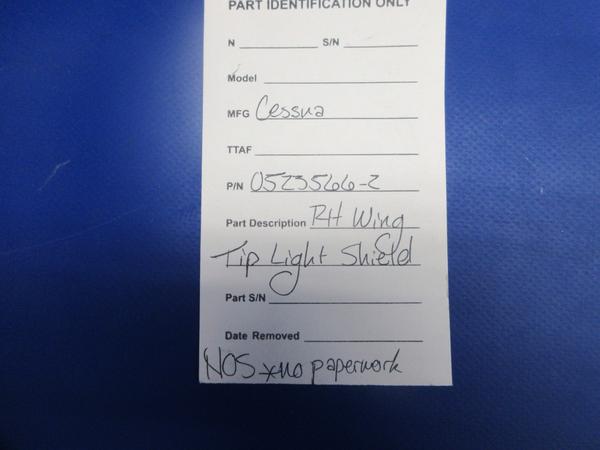 PART IDENTIFICATION ONLY
N S/N
Model
MFG Cessna
TTAF
P/N 0523566-2
Part Description RH Wing
Tip Light Shield
Part S/N
Date Removed
NOS *no paperwork